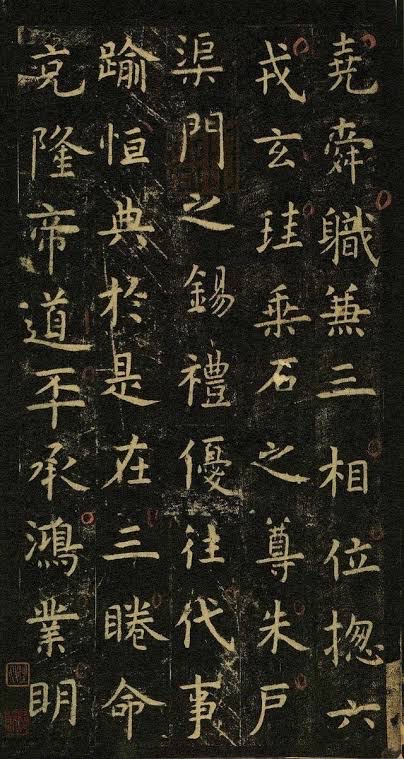 堯舜軄兼三相位揔六
戎玄珪乘石之尊朱戶
渠門之錫禮優往代事
踰恒典於是在三睠命
克隆帝道丕承鴻業明